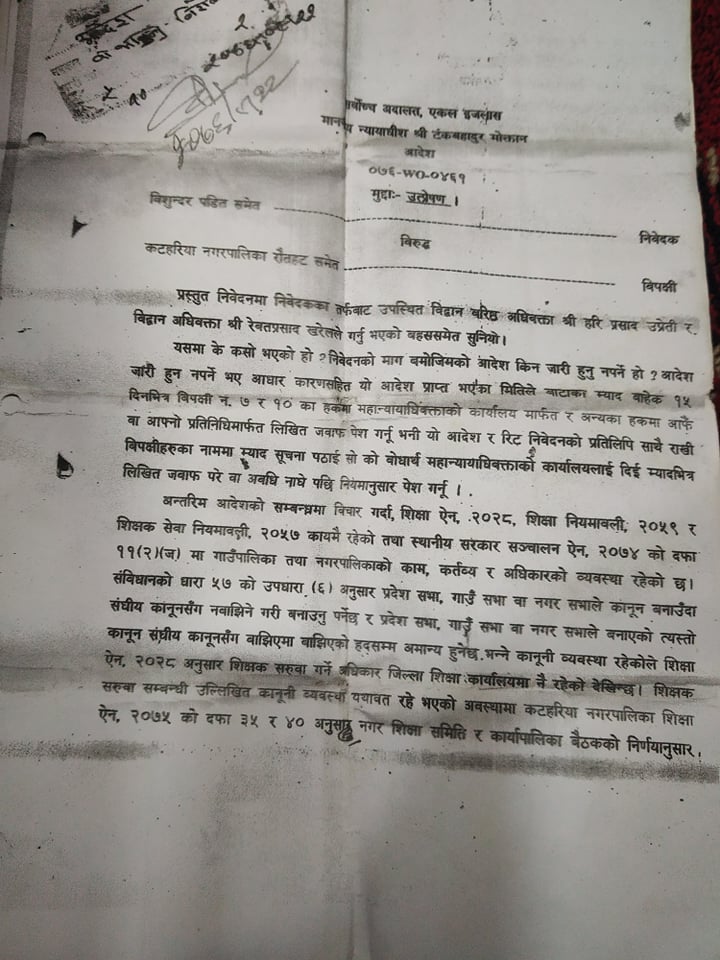 सर्वोच्च अदालत, एकल इजलास
माननीय न्यायाधीश श्री टंकबहादुर मोक्तान
आदेश
०७६-WO-०४६१
मुद्दाः- उत्प्रेषण ।
विशुन्दर पडित समेत निवेदक
विरुद्ध
कटहरिया नगरपालिका रौतहट समेत विपक्षी
प्रस्तुत निवेदनमा निवेदकका तर्फबाट उपस्थित विद्वान वरिष्ठ अधिवक्ता श्री हरि प्रसाद उप्रेती र
विद्वान अधिवक्ता श्री रेवतप्रसाद खरेलले गर्नु भएको बहससमेत सुनियो।
यसमा के कसो भएको हो ? निवेदनको माग बमोजिमको आदेश किन जारी हुनु नपर्ने हो ? आदेश
जारी हुन नपर्ने भए आधार कारणसहित यो आदेश प्राप्त भएका मितिले बाटाका म्याद बाहेक १५
दिनभित्र विपक्षी नं. ७ र १० का हकमा महान्यायाधिवक्ताको कार्यालय मार्फत र अन्यका हकमा आफै
वा आफ्नो प्रतिनिधिमार्फत लिखित जवाफ पेश गर्नू भनी यो आदेश र रिट निवेदनको प्रतिलिपि साथै राखी
विपक्षीहरुका नाममा म्याद सूचना पठाई सो को बोधार्थ महान्यायाधिवक्ताको कार्यालयलाई दिई म्यादभित्र
लिखित जवाफ परे वा अवधि नाघे पछि नियमानुसार पेश गर्नू ।
अन्तरिम आदेशको सम्बन्धमा विचार गर्दा, शिक्षा ऐन, २०२८, शिक्षा नियमावली, २०५९ र
शिक्षक सेवा नियमावली, २०५७ कायमै रहेको तथा स्थानीय सरकार सञ्चालन ऐन, २०७४ को दफा
११(२)(ज) मा गाउँपालिका तथा नगरपालिकाको काम, कर्तव्य र अधिकारको व्यवस्था रहेको छ।
संविधानको धारा ५७ को उपधारा (६) अनुसार प्रदेश सभा, गाउँ सभा वा नगर सभाले कानून बनाउँदा
संघीय कानूनसँग नबाझिने गरी बनाउनु पर्नेछ र प्रदेश सभा, गाउँ सभा वा नगर सभाले बनाएको त्यस्तो
कानून संघीय कानूनसँग बाझिएमा बाझिएको हदसम्म अमान्य हुनेछ भन्ने कानूनी व्यवस्था रहेकोले शिक्षा
ऐन, २०२८ अनुसार शिक्षक सरुवा गर्ने अधिकार जिल्ला शिक्षा कार्यालयमा नै रहेको देखिन्छ। शिक्षक
सरुवा सम्बन्धी उल्लिखित कानूनी व्यवस्था यथावत रहे भएको अवस्थामा कटहरिया नगरपालिका शिक्षा
ऐन, २०७५ को दफा ३५ र ४० अनुसार नगर शिक्षा समिति र कार्यपालिका बैठकको निर्णयानुसार